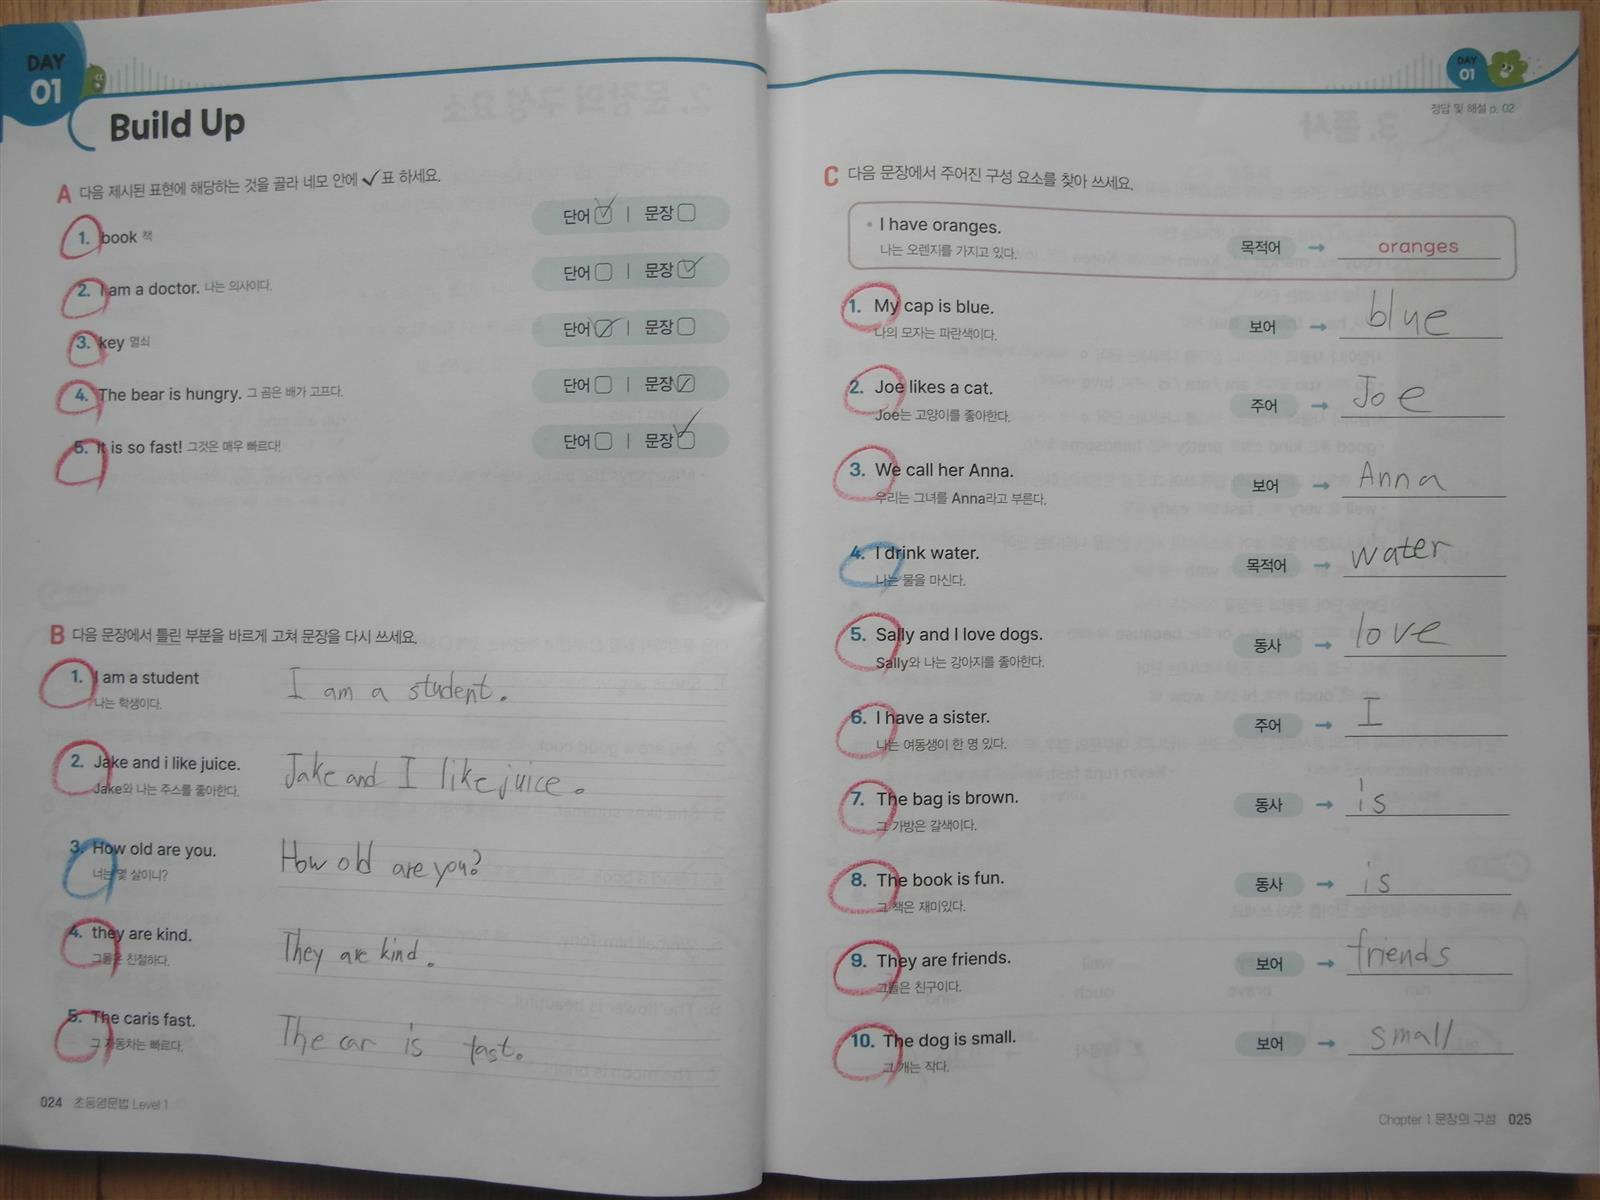 DAY
01
Build Up
A 다음 제시된 표현에 해당하는 것을 골라 네모 안에 ✓표 하세요.
1. book 책
단어 ☑ | 문장 □
2. I am a doctor. 나는 의사이다.
단어 □ | 문장 ☑
3. key 열쇠
단어 ☑ | 문장 □
4. The bear is hungry. 그 곰은 배가 고프다.
단어 □ | 문장 ☑
5. It is so fast! 그것은 매우 빠르다!
단어 □ | 문장 ☑
B 다음 문장에서 틀린 부분을 바르게 고쳐 문장을 다시 쓰세요.
1. I am a student
나는 학생이다.
I am a student.
2. Jake and i like juice.
Jake와 나는 주스를 좋아한다.
Jake and I like juice.
3. How old are you.
너는 몇 살이니?
How old are you?
4. they are kind.
그들은 친절하다.
They are kind.
5. The caris fast.
그 자동차는 빠르다.
The car is fast.
024 초등영문법 Level 1
DAY
01
정답 및 해설 p. 02
C 다음 문장에서 주어진 구성 요소를 찾아 쓰세요.
• I have oranges.
나는 오렌지를 가지고 있다.
목적어 → oranges
1. My cap is blue.
나의 모자는 파란색이다.
보어 → blue
2. Joe likes a cat.
Joe는 고양이를 좋아한다.
주어 → Joe
3. We call her Anna.
우리는 그녀를 Anna라고 부른다.
보어 → Anna
4. I drink water.
나는 물을 마신다.
목적어 → water
5. Sally and I love dogs.
Sally와 나는 강아지를 좋아한다.
동사 → love
6. I have a sister.
나는 여동생이 한 명 있다.
주어 → I
7. The bag is brown.
그 가방은 갈색이다.
동사 → is
8. The book is fun.
그 책은 재미있다.
동사 → is
9. They are friends.
그들은 친구이다.
보어 → friends
10. The dog is small.
그 개는 작다.
보어 → small
Chapter 1 문장의 구성 025